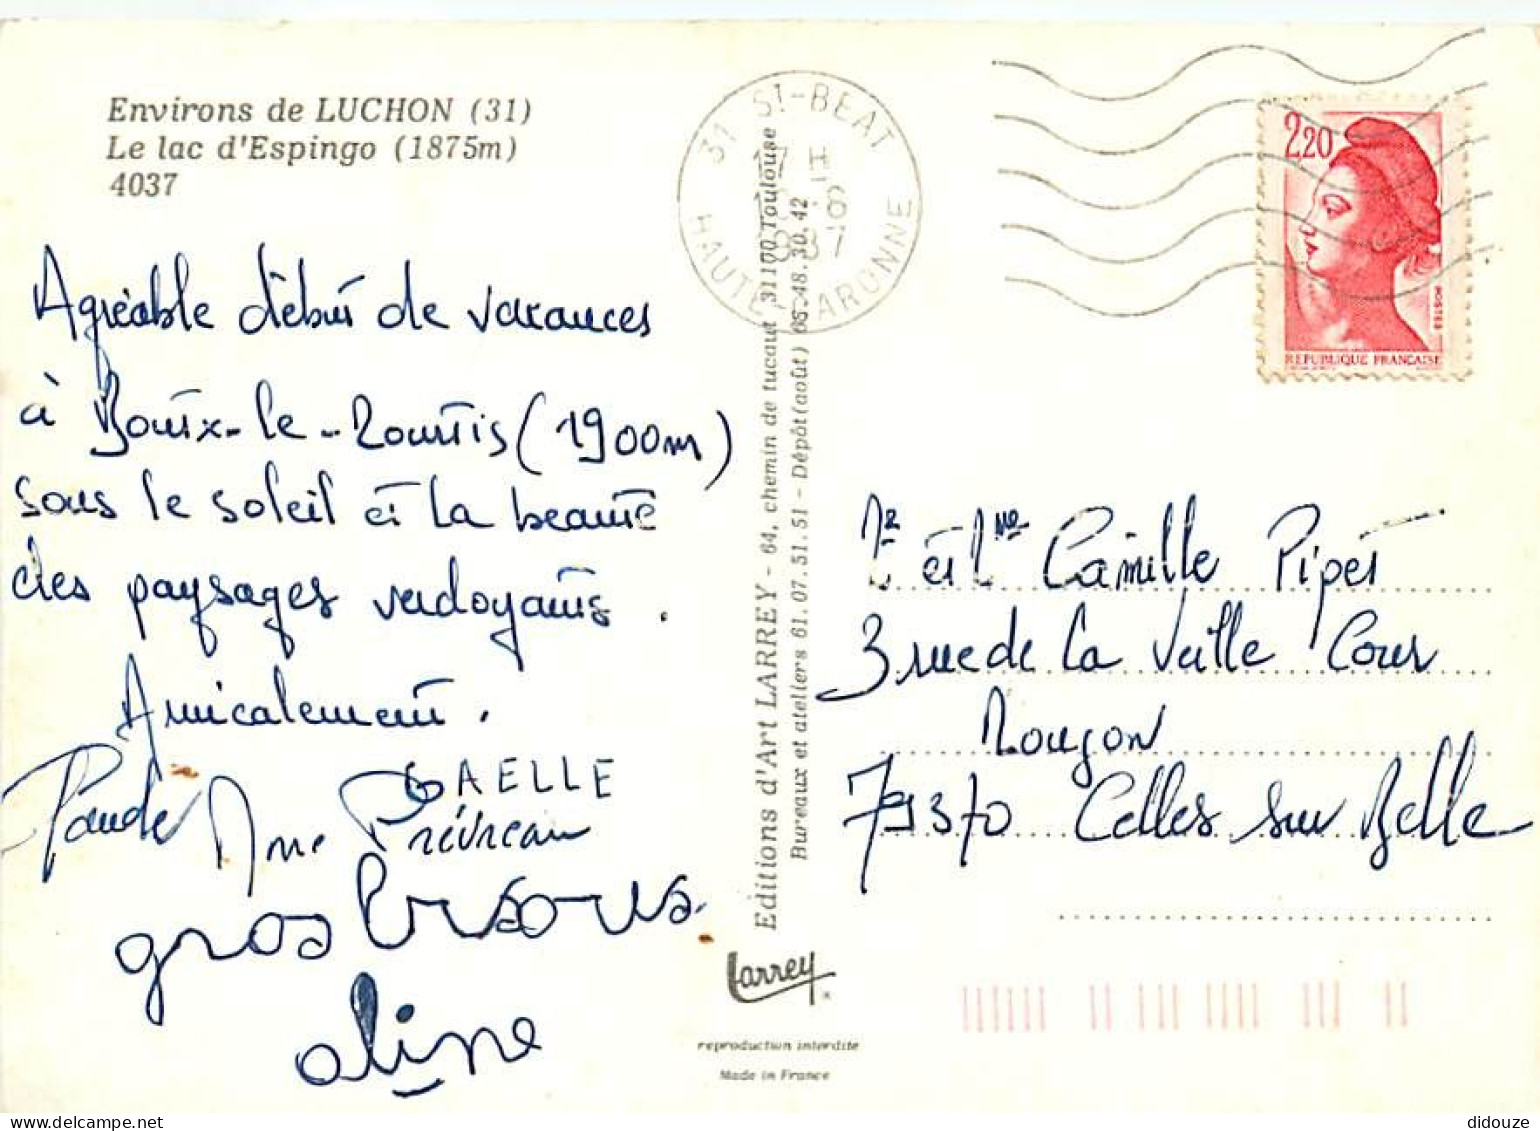 Environs de LUCHON (31)
Le lac d'Espingo (1875m)
4037
Agréable début de vacances
à Bourx-le-Mourtis (1900m)
sous le soleil et la beauté
des paysages verdoyants.
Amicalement.
GAELLE
Mme Prévreau
gros bisous.
aline
Editions d'Art LARREY - 64, chemin de tucaut 31100 Toulouse
Bureaux et ateliers 61.07.51.51 - Dépôt (août) 68.48.30.42
Larrey
reproduction interdite
Made in France
31 ST-BEAT
17 H
-6
1987
HAUTE GARONNE
2,20
POSTES
REPUBLIQUE FRANÇAISE
Mr et Mme Camille Pipet
3 rue de la Vieille Cour
Mougon
79370 Celles sur Belle
didouze